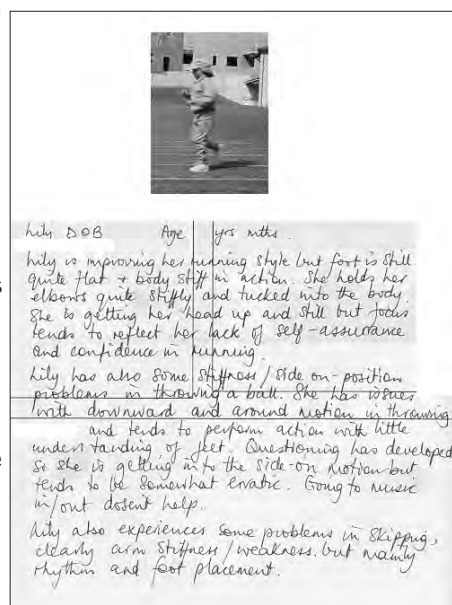 Lily DOB Age yrs mths.
Lily is improving her running style but foot is still
quite flat + body stiff in action. She holds her
elbows quite stiffly and tucked into the body.
She is getting her head up and still but focus
tends to reflect her lack of self-assurance
and confidence in running.
Lily has also some stiffness/side on-position
problems in throwing a ball. She has issues
with downward and around motion in throwing
and tends to perform action with little
understanding of feet. Questioning has developed
so she is getting into the side-on motion but
tends to be somewhat erratic. Going to music
in/out dosent help.
Lily also experiences some problems in skipping,
clearly arm stiffness/weakness. but mainly
rhythm and foot placement.